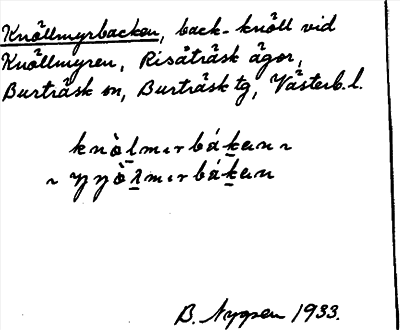 Knöllmyrbacken, back-knöll vid
Knöllmyren, Risåträsk ägor,
Burträsk sn, Burträsk tg, Västerb.l.
knòlmırbákɐn ~
~ ŋŋòlmırbákɐn
B. Nygren 1933.